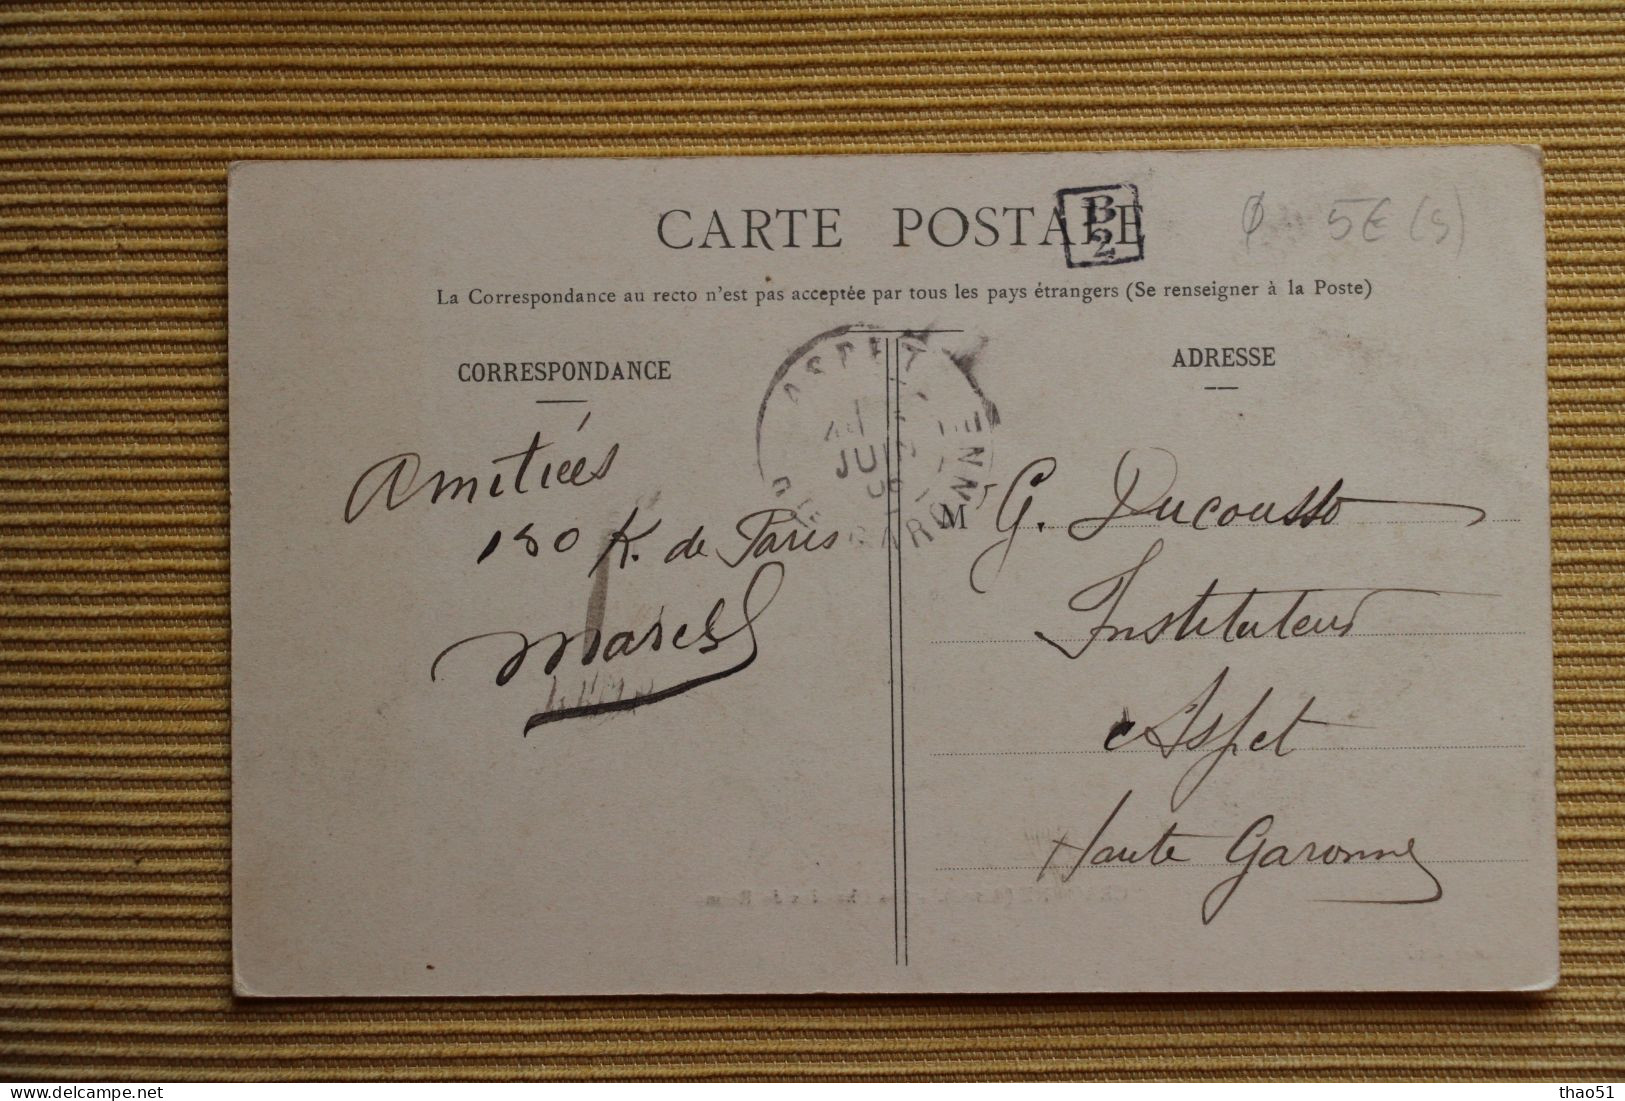 CARTE POSTALE
B
2
5€ (s)
La Correspondance au recto n'est pas acceptée par tous les pays étrangers (Se renseigner à la Poste)
CORRESPONDANCE
ADRESSE
ASPET
JUIN
GARONNE
Amitiées
180 K. de Paris
Marcel
M G. Ducousso
Instituteur
Aspet
Haute Garonne
delcampe.net
thao51